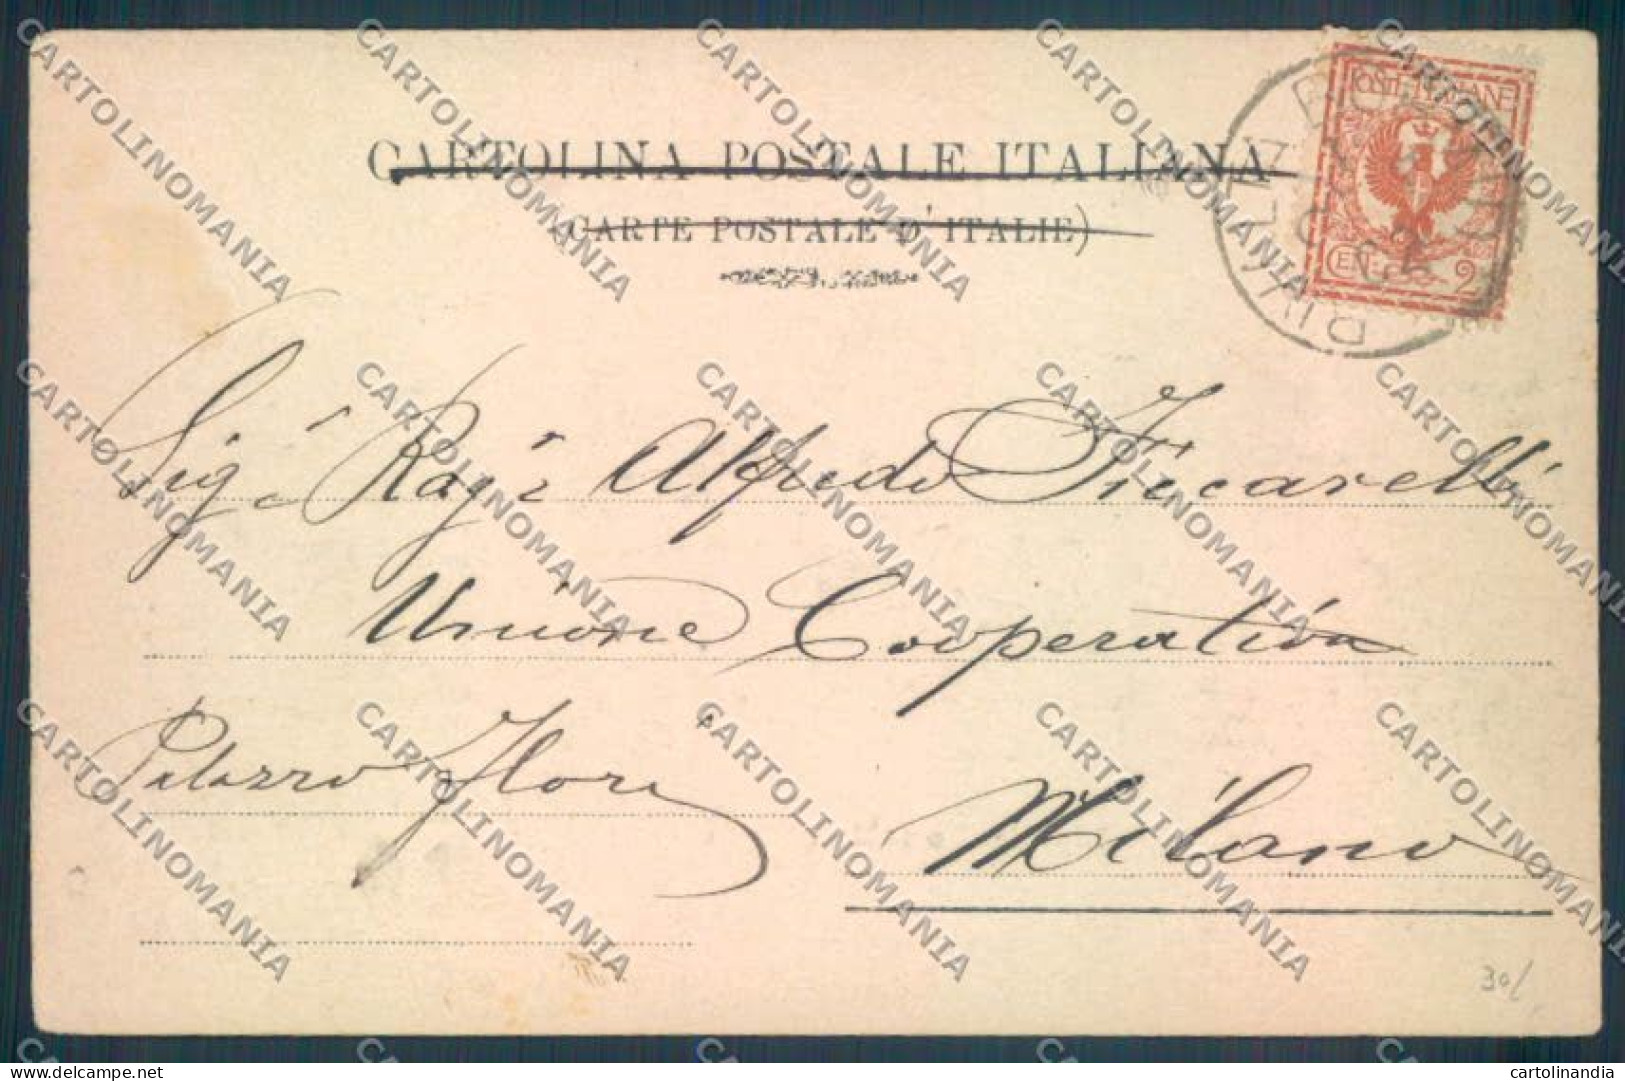 CARTOLINA POSTALE ITALIANA
(CARTE POSTALE D'ITALIE)
POSTE ITALIANE
CENT. 2
Sigʳ Ragʳ Alfredo Ficcarelli
Unione Cooperativa
Palazzo Flori
Milano
30/
CARTOLINOMANIA
cartolinandia